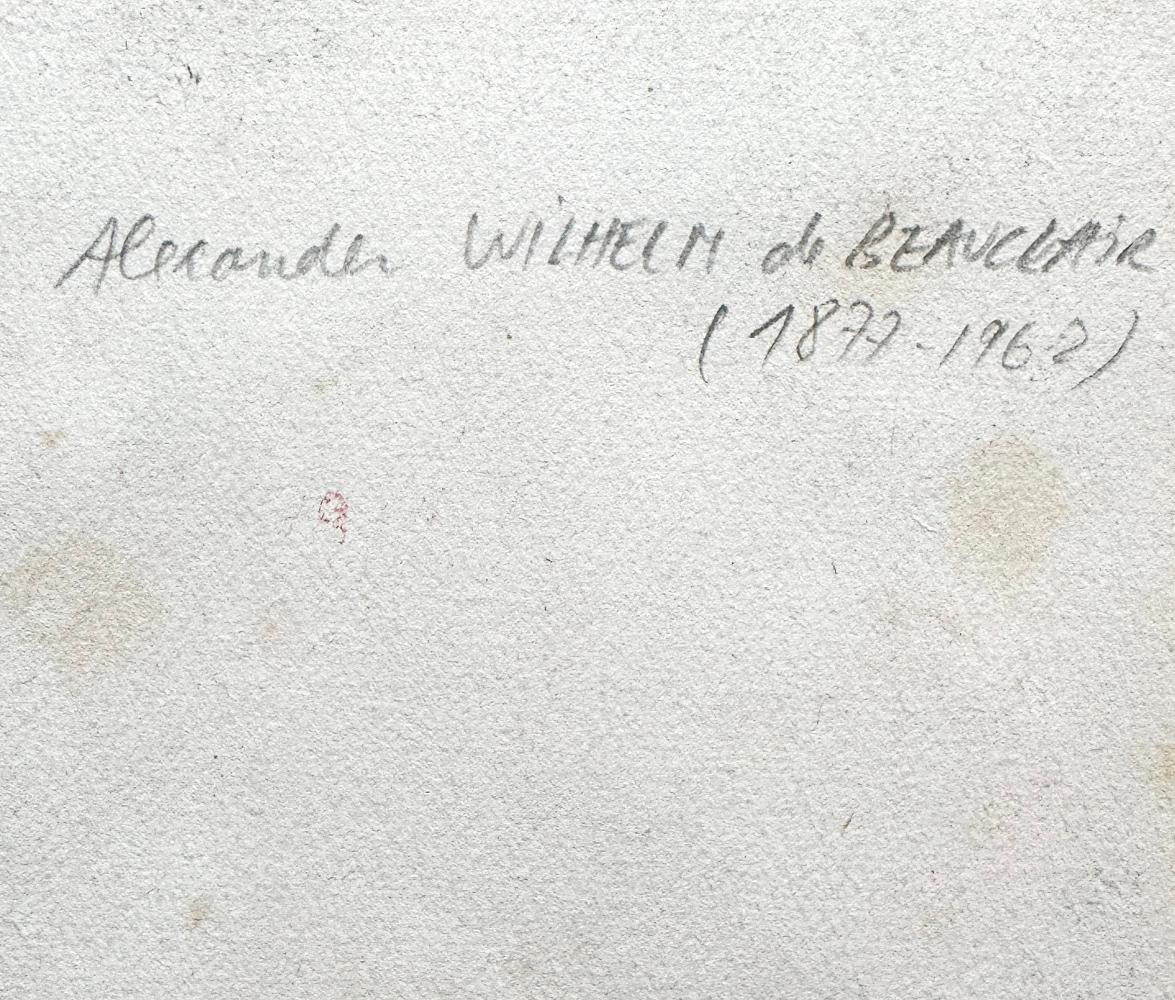 Alexander WILHELM de BEAUCLAIR
(1877-1962)